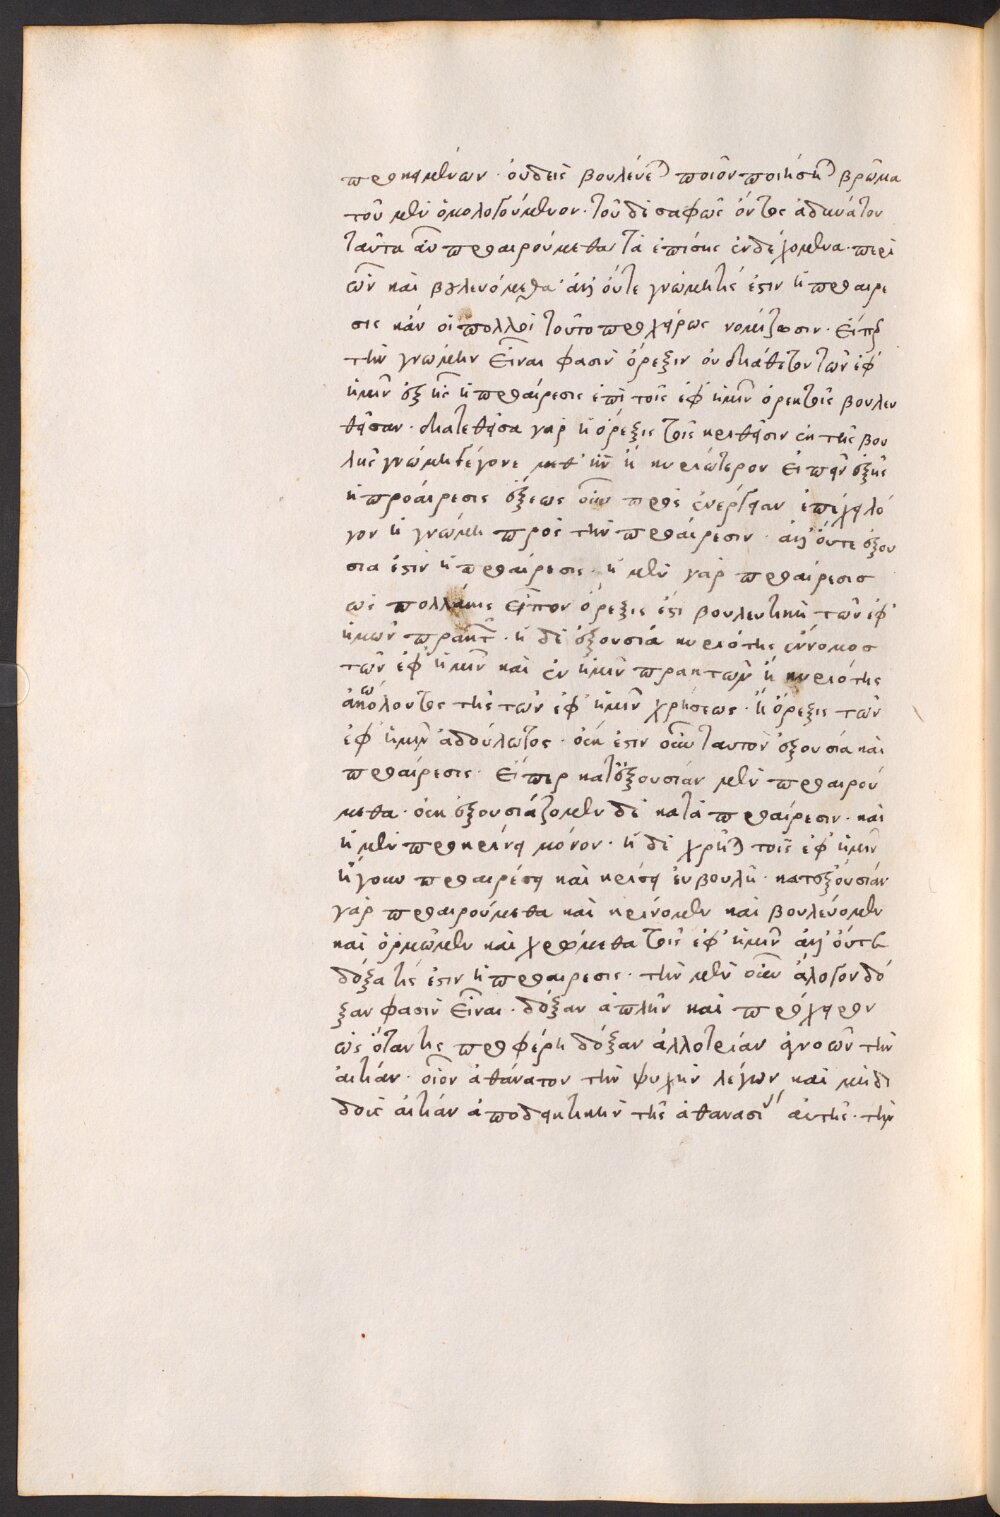 προκειμένων· οὐδεὶς βουλεύεται ποῖον ποιήσει βρῶμα
τοῦ μὲν ὁμολογούμενον· τοῦ δὲ σαφῶς ὄντος ἀδυνάτου
ταῦτα ἂν προαιρούμεθα τὰ ἐπίσης ἐνδεχόμενα· περὶ
ὧν καὶ βουλευόμεθα· ἀλλ' οὔτε γνώμη τίς ἐστιν ἡ προαίρε
σις κἂν οἱ πολλοὶ τοῦτο προχείρως νομίζωσιν· εἴπερ
τὴν γνώμην εἶναι φασὶν ὄρεξιν ἐνδιάθετον τῶν ἐφ'
ἡμῖν ἐξ ἧς ἡ προαίρεσις ἐπὶ τοῖς ἐφ' ἡμῖν ὀρεκτοῖς βουλευ
θεῖσαν· διατεθεῖσα γὰρ ἡ ὄρεξις τοῖς κριθεῖσιν ἐκ τῆς βου
λῆς γνώμη γέγονε μεθ' ἣν ἢ κυριώτερον εἰπεῖν ἐξ ἧς
ἡ προαίρεσις ἕξεως οὖν πρὸς ἐνέργειαν ἐπέχει λό
γον ἡ γνώμη πρὸς τὴν προαίρεσιν· ἀλλ' οὔτε ἐξου
σία ἐστὶν ἡ προαίρεσις· ἡ μὲν γὰρ προαίρεσις
ὡς πολλάκις εἶπον ὄρεξις ἐστὶ βουλευτικὴ τῶν ἐφ'
ἡμῶν πρακτῶν· ἡ δὲ ἐξουσία κυριότης ἔννομος
τῶν ἐφ' ἡμῖν καὶ ἐν ἡμῖν πρακτῶν ἢ κυριότης
ἀκώλουτος τῆς τῶν ἐφ' ἡμῖν χρήσεως· ἢ ὄρεξις τῶν
ἐφ' ἡμῖν ἀδούλωτος· οὐκ ἔστιν οὖν ταυτὸν ἐξουσία καὶ
προαίρεσις· εἴπερ κατ' ἐξουσίαν μὲν προαιρού
μεθα· οὐκ ἐξουσιάζομεν δὲ κατὰ προαίρεσιν· καὶ
ἡ μὲν προκρίνει μόνον· ἡ δὲ χρῆται τοῖς ἐφ' ἡμῖν
ἤγουν προαιρέσει καὶ κρίσει ἐν βουλῇ· κατ' ἐξουσίαν
γὰρ προαιρούμεθα καὶ κρίνομεν καὶ βουλεύομεν
καὶ ὁρμῶμεν καὶ χρώμεθα τοῖς ἐφ' ἡμῖν ἀλλ' οὔτε
δόξα τίς ἐστιν ἡ προαίρεσις· τὴν μὲν οὖν ἄλογον δό
ξαν φασὶν εἶναι· δόξαν ἁπλῆν καὶ πρόχειρον
ὡς ὅταν τις προφέρῃ δόξαν ἀλλοτρίαν ἀγνοῶν τὴν
αἰτίαν· οἷον ἀθάνατον τὴν ψυχὴν λέγων καὶ μὴ δι
δοὺς αἰτίαν ἀποδεικτικὴν τῆς ἀθανασίας αὐτῆς· τὴν